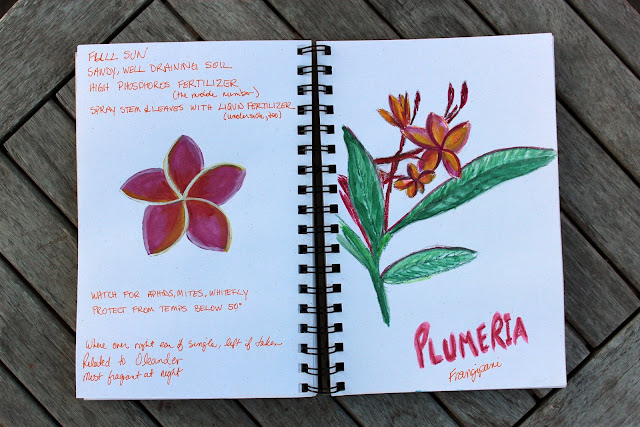 FULL SUN
SANDY, WELL DRAINING SOIL
HIGH PHOSPHOROS FERTILIZER
(the middle number)
SPRAY STEM & LEAVES WITH LIQUID FERTILIZER
(underside, too)
WATCH FOR APHIDS, MITES, WHITEFLY
PROTECT FROM TEMPS BELOW 50°
Where over right ear if single, left if taken
Related to Oleander
Most fragrant at night
PLUMERIA
Frangipani